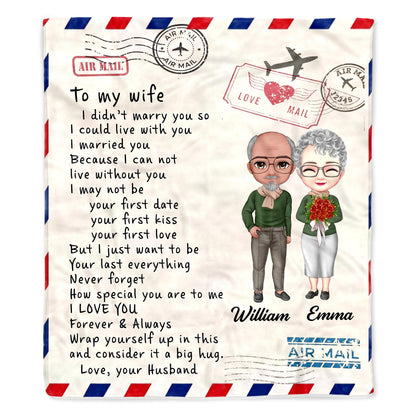 AIR MAIL
AIR MAIL
AIR MAIL
LOVE MAIL
AIR MAIL
12345
To my wife
I didn't marry you so
I could live with you
I married you
Because I can not
live without you
I may not be
your first date
your first kiss
your first love
But I just want to be
Your last everything
Never forget
How special you are to me
I LOVE YOU
Forever & Always
Wrap yourself up in this
and consider it a big hug.
Love, your Husband
William
Emma
AIR MAIL